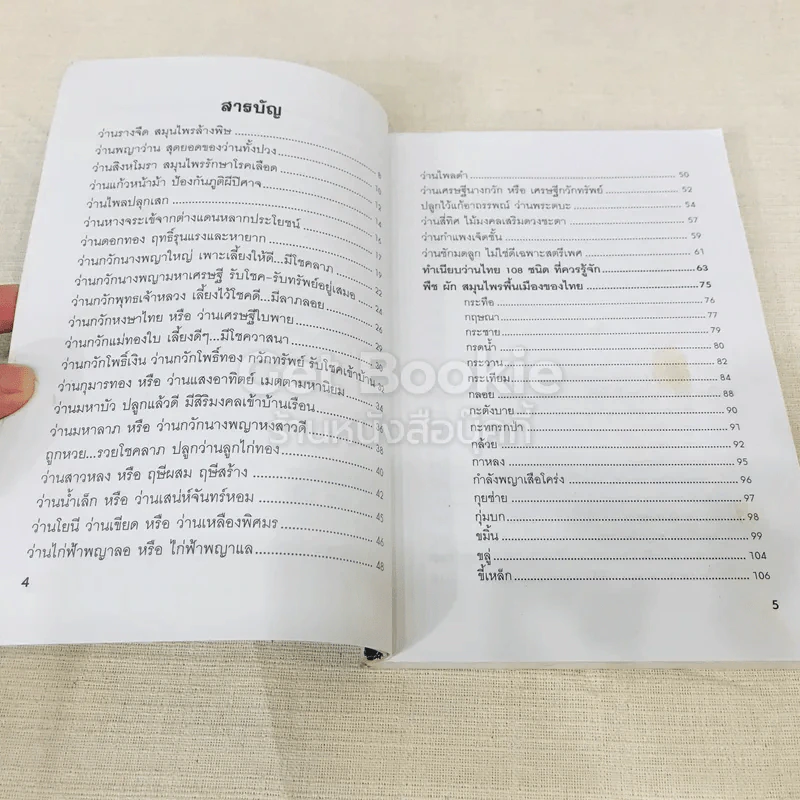 สารบัญ
ว่านรางจืด สมุนไพรล้างพิษ
ว่านพญาว่าน สุดยอดของว่านทั้งปวง 8
ว่านสิงหโมรา สมุนไพรรักษาโรคเลือด 10
ว่านแก้วหน้าม้า ป้องกันภูติผีปีศาจ 12
ว่านไพลปลุกเสก 14
ว่านหางจระเข้จากต่างแดนหลากประโยชน์ 15
ว่านดอกทอง ฤทธิ์รุนแรงและหายาก 17
ว่านกวักนางพญาใหญ่ เพาะเลี้ยงให้ดี...มีโชคลาภ 19
ว่านกวักนางพญามหาเศรษฐี รับโชค-รับทรัพย์อยู่เสมอ 22
ว่านกวักพุทธเจ้าหลวง เลี้ยงไว้โชคดี...มีลาภลอย 24
ว่านกวักหงษาไทย หรือ ว่านเศรษฐีใบพาย 26
ว่านกวักแม่ทองใบ เลี้ยงดีๆ...มีโชควาสนา 29
ว่านกวักโพธิ์เงิน ว่านกวักโพธิ์ทอง กวักทรัพย์ รับโชคเข้าบ้าน
ว่านกุมารทอง หรือ ว่านแสงอาทิตย์ เมตตามหานิยม 32
ว่านมหาบัว ปลูกแล้วดี มีสิริมงคลเข้าบ้านเรือน 34
ว่านมหาลาภ หรือ ว่านกวักนางพญาหงสาวดี 36
ถูกหวย...รวยโชคลาภ ปลูกว่านลูกไก่ทอง 38
ว่านสาวหลง หรือ ฤษีผสม ฤษีสร้าง 40
ว่านน้ำเล็ก หรือ ว่านเสน่ห์จันทร์หอม 42
ว่านโยนี ว่านเขียด หรือ ว่านเหลืองพิศมร 45
ว่านไก่ฟ้าพญาลอ หรือ ไก่ฟ้าพญาแล 46
48
4
ว่านไพลดำ 50
ว่านเศรษฐีนางกวัก หรือ เศรษฐีกวักทรัพย์ 52
ปลูกไว้แก้อาถรรพณ์ ว่านพระตบะ 54
ว่านสี่ทิศ ไม้มงคลเสริมดวงชะตา 57
ว่านกำแพงเจ็ดชั้น 59
ว่านชักมดลูก ไม่ใช่ดีเฉพาะสตรีเพศ 61
ทำเนียบว่านไทย 108 ชนิด ที่ควรรู้จัก 63
พืช ผัก สมุนไพรพื้นเมืองของไทย 75
กระทือ 76
กฤษณา 77
กระชาย 79
กรดน้ำ 80
กระวาน 82
กระเทียม 84
กลอย 88
กะตังบาย 90
กะทกรกป่า 91
กล้วย 92
กาหลง 95
กำลังพญาเสือโคร่ง 96
กุยช่าย 97
กุ่มบก 98
ขมิ้น 99
ขลู่ 104
ขี้เหล็ก 106
5
Get Bookie
ร้านหนังสือบุ๊กกี้